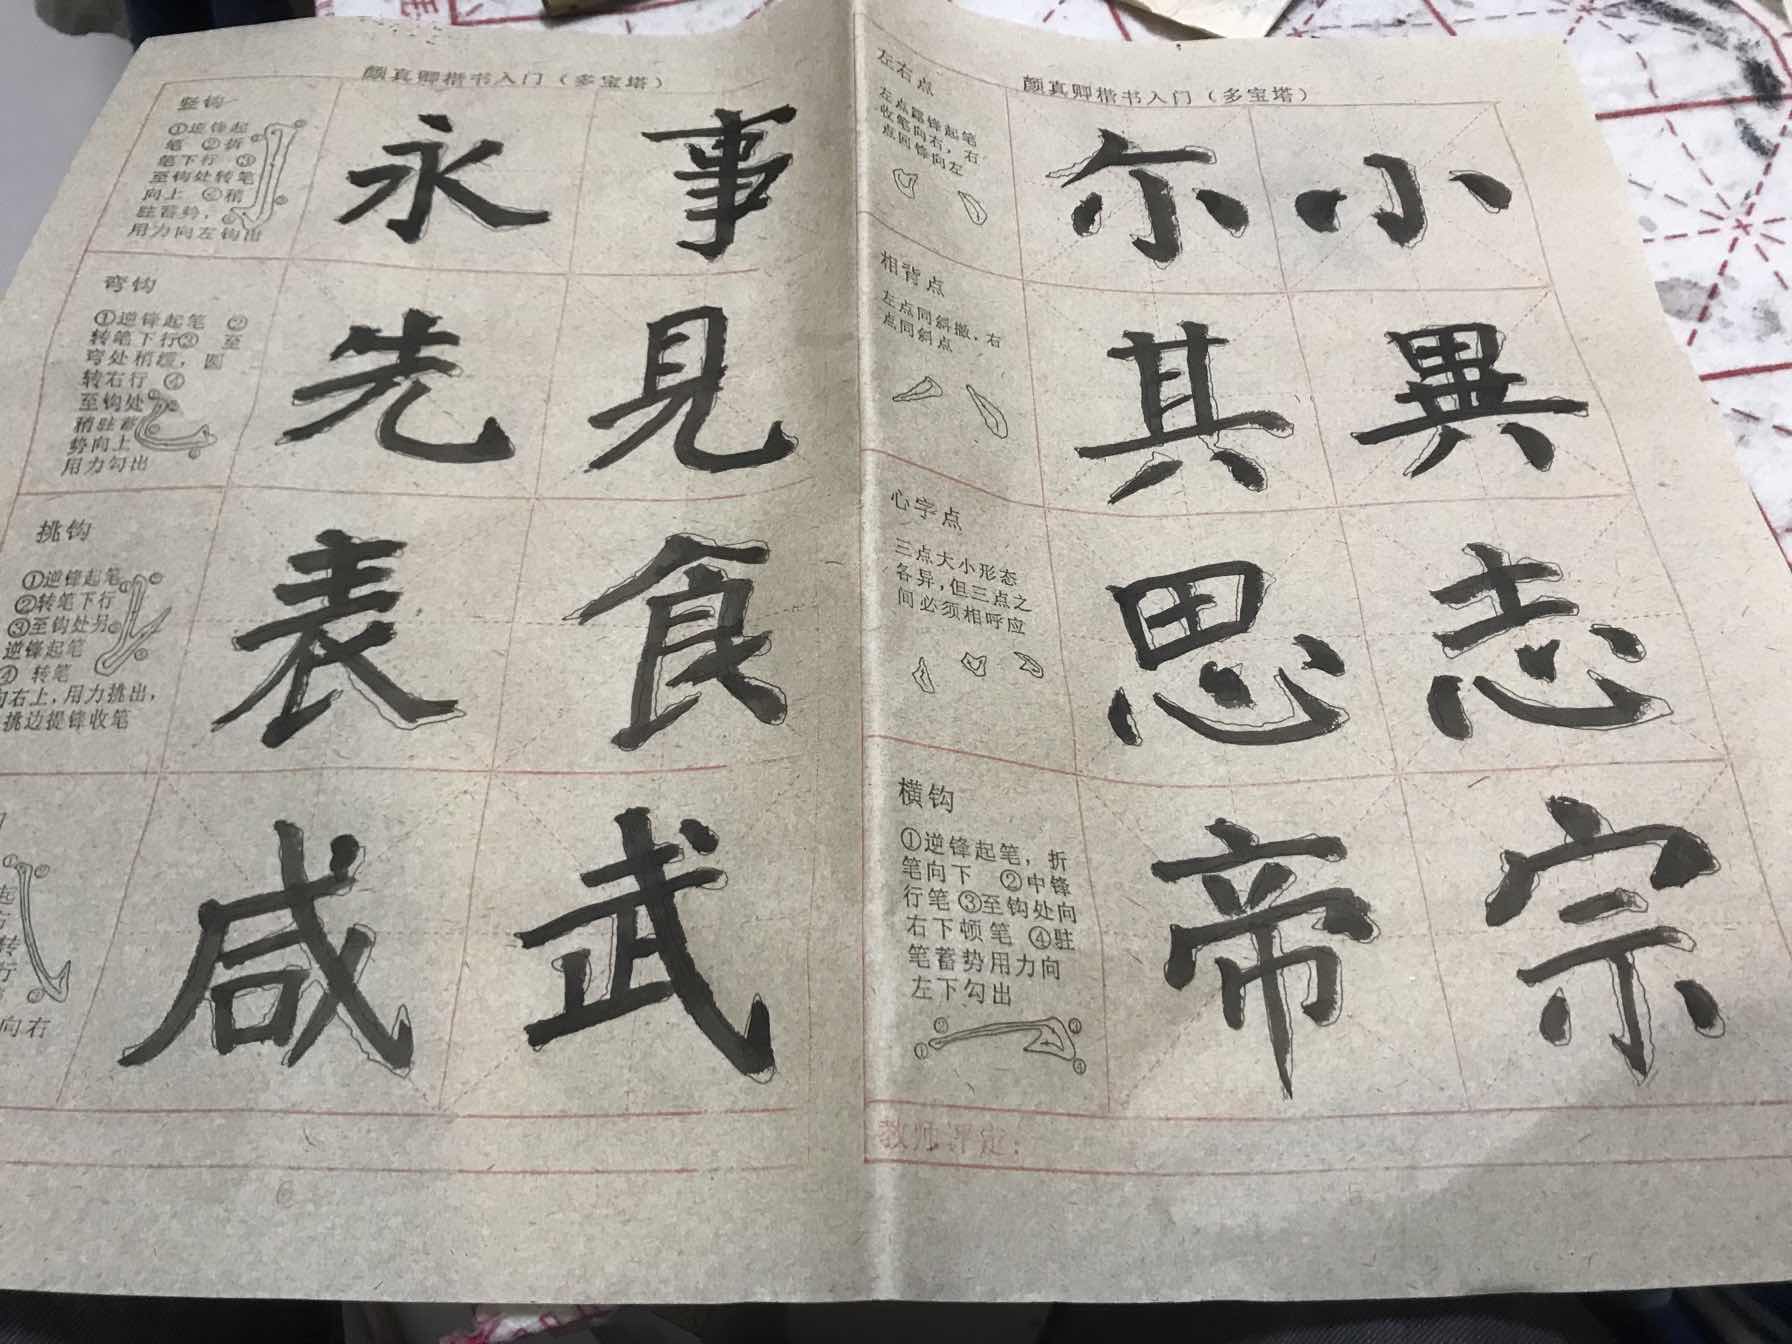 颜真卿楷书入门（多宝塔）
竖钩
①逆锋起
笔 ②折
笔下行 ③
至钩处转笔
向上 ④稍
驻蓄势，
用力向左钩出
永 事
弯钩
①逆锋起笔 ②
转笔下行③ 至
弯处稍缓，圆
转右行 ④
至钩处
稍驻蓄
势向上
用力勾出
先 見
挑钩
①逆锋起笔
②转笔下行
③至钩处另
逆锋起笔
④ 转笔
向右上，用力挑出，
挑边提锋收笔
表 食
起
转
行
向右
咸 武
颜真卿楷书入门（多宝塔）
左右点
左点露锋起笔
收笔向右，右
点回锋向左
尓 小
相背点
左点同斜撇，右
点同斜点
其 異
心字点
三点大小形态
各异，但三点之
间必须相呼应
思 志
横钩
①逆锋起笔，折
笔向下 ②中锋
行笔 ③至钩处向
右下顿笔 ④驻
笔蓄势用力向
左下勾出
帝 宗
教师评定：